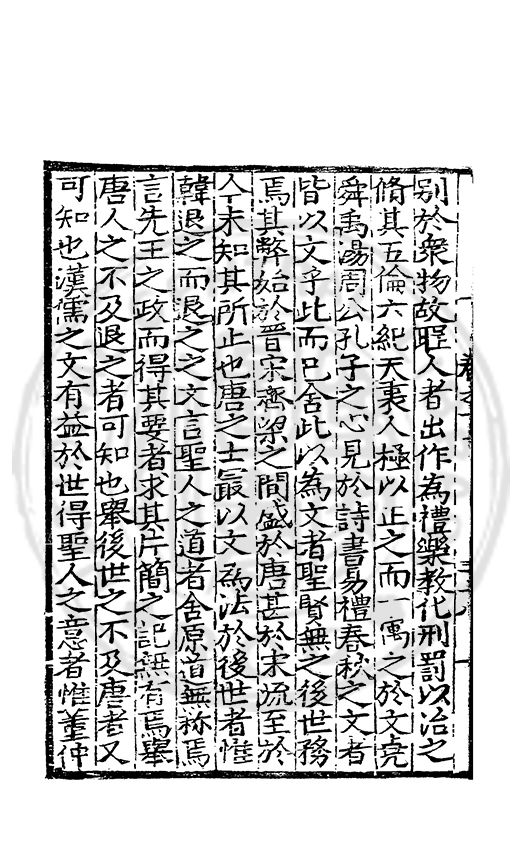 别於衆物故聖人者出作為禮樂教化刑罰以治之
脩其五倫六紀天衷人極以止之而一寓之於文堯
舜禹湯周公孔子之心見於詩書易禮春秋之文者
皆以文乎此而已舍此以為文者聖賢無之後世務
焉其弊始於晋宋齊梁之間盛於唐甚於宋流至於
今未知其所止也唐之士最以文為法於後世者惟
韓退之而退之之文言聖人之道者舍原道無称焉
言先王之政而得其要者求其片簡之記無有焉舉
唐人之不及退之者可知也舉後世之不及唐者又
可知也漢儒之文有益於世得聖人之意者惟董仲